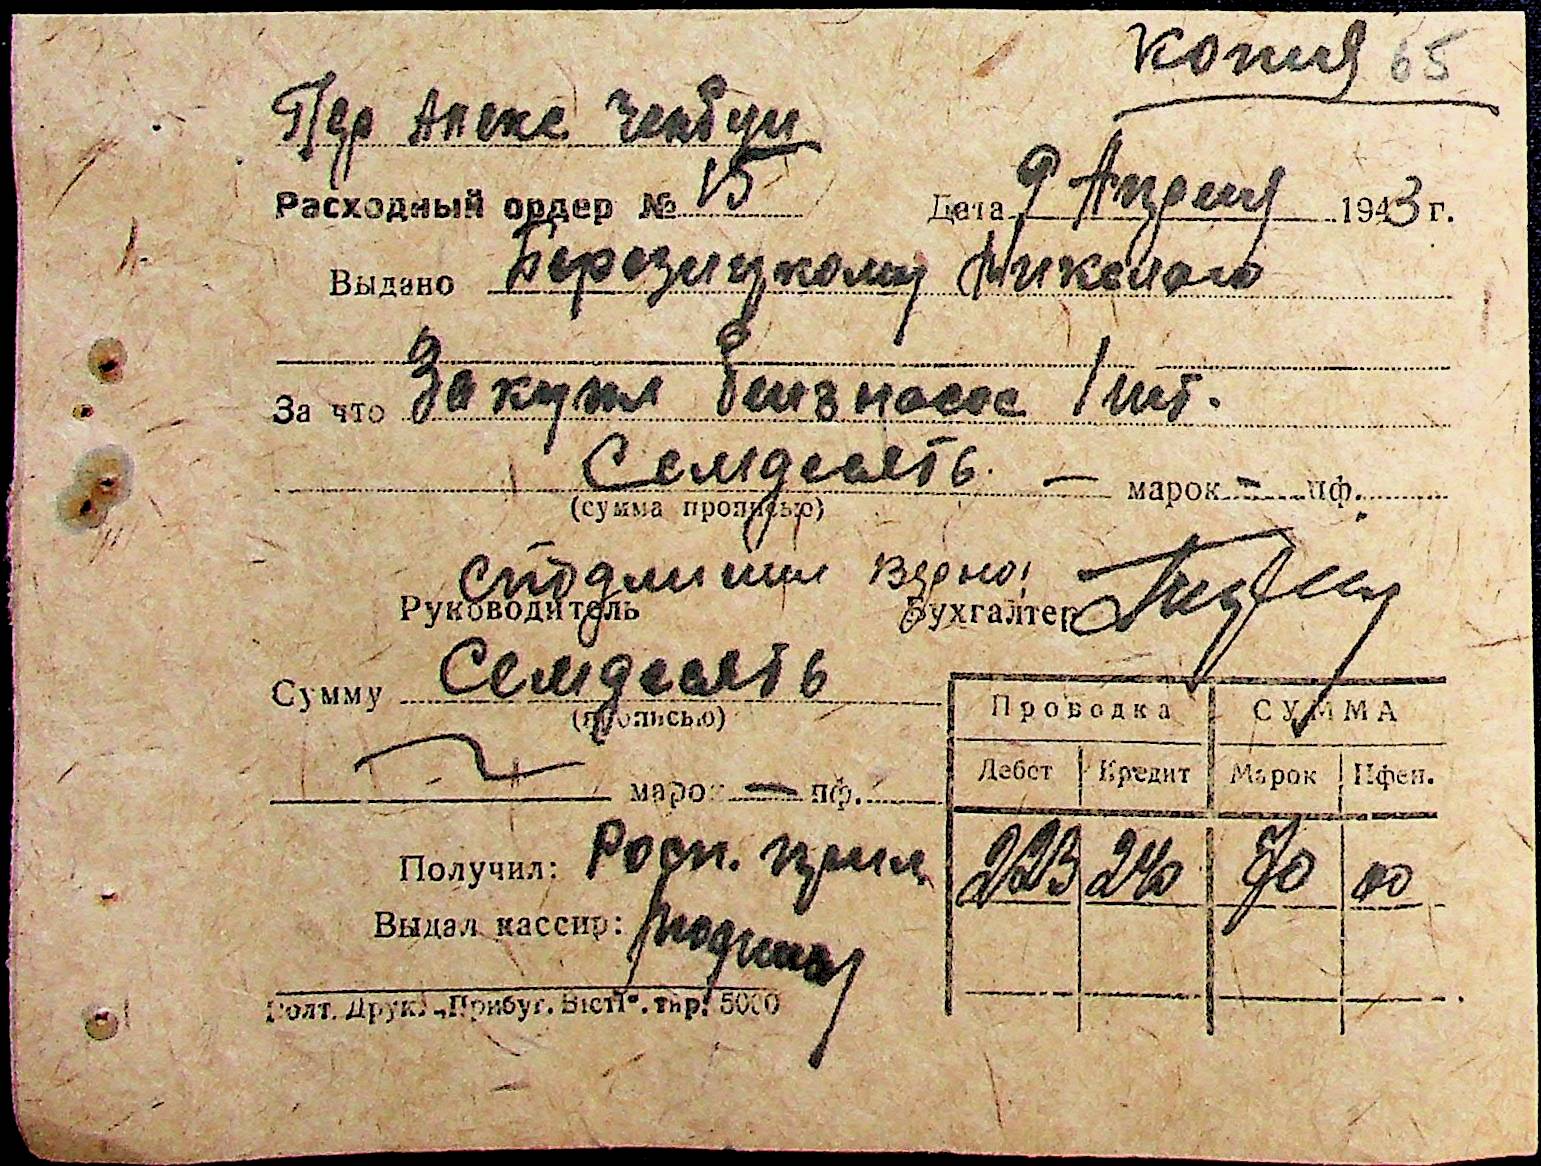 копия 65
Пер Алекс
Расходный ордер № 15 Дата 9 Апреля 1943 г.
Выдано Березицкому
За что За купл бензнасос 1 шт.
Семдесять — марок — пф.
(сумма прописью)
с подлиним верно:
Руководитель Бухгалтер
Сумму Семдесять
(прописью)
марок — пф.
Проводка СУММА
Дебет Кредит Марок Пфен.
223 240 70 00
Получил: Росп.
Выдал кассир:
Голт. Друк. „Прибуг. Вісті". тир. 5000